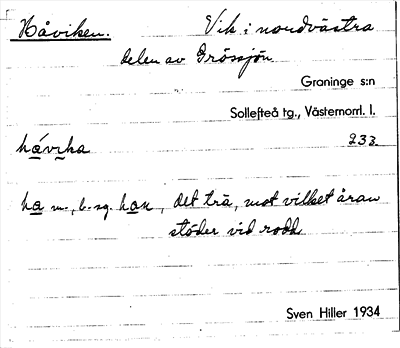 Håviken. Vik i nordvästra
delen av Grössjön
Graninge s:n
Sollefteå tg., Västernorrl. l.
håvıka 233.
ha m., b. sg. han, det trä, mot vilket åran
stöder vid rodd
Sven Hiller 1934